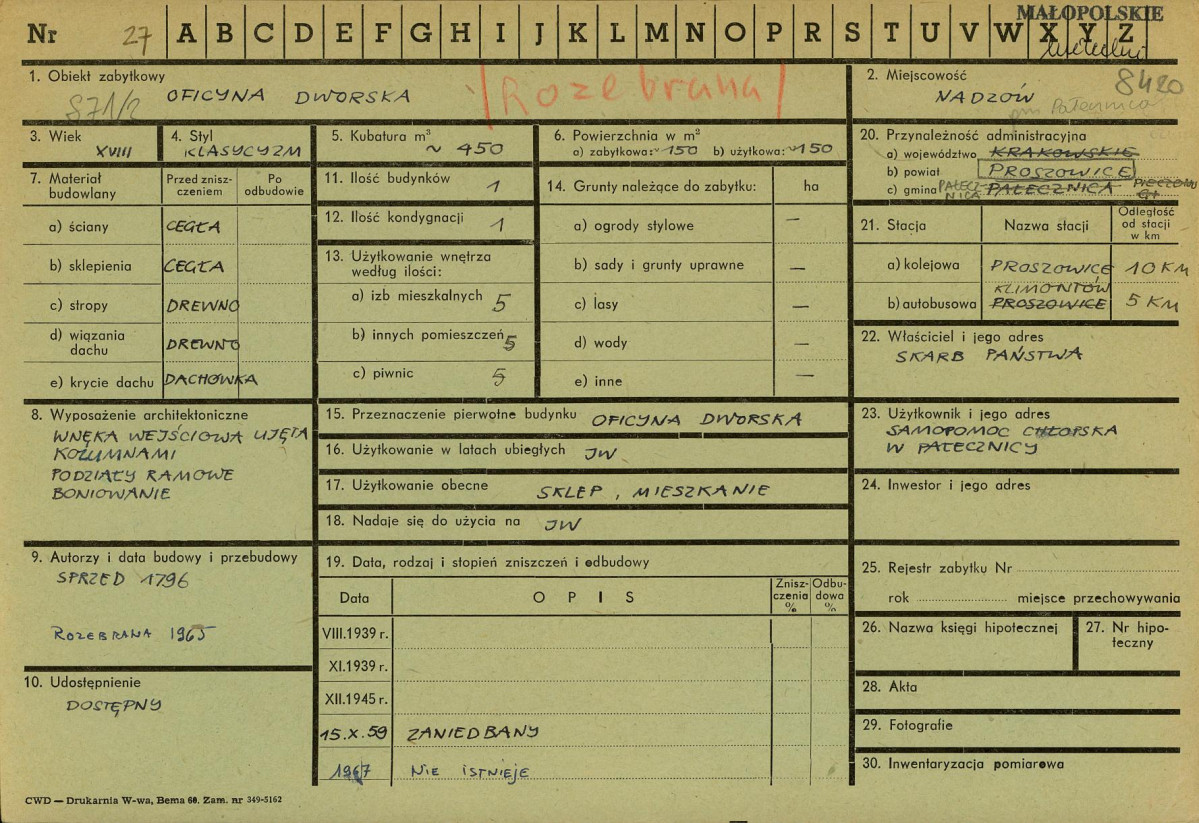 MAŁOPOLSKIE
Nr 27 A B C D E F G H I J K L M N O P R S T U V W X Y Z
1. Obiekt zabytkowy
871/2 OFICYNA DWORSKA
Rozebrana
2. Miejscowość
8420
NADZÓW
3. Wiek
XVIII
4. Styl
KLASYCYZM
5. Kubatura m³
~ 450
6. Powierzchnia w m²
a) zabytkowa: ~150 b) użytkowa: ~150
20. Przynależność administracyjna
a) województwo KRAKOWSKIE
b) powiat PROSZOWICE
c) gmina PAŁECZNICA PAŁECZNICA
7. Materiał budowlany
Przed znisz-
czeniem
Po
odbudowie
a) ściany CEGŁA
b) sklepienia CEGŁA
c) stropy DREWNO
d) wiązania
dachu DREWNO
e) krycie dachu DACHÓWKA
11. Ilość budynków 1
12. Ilość kondygnacji 1
13. Użytkowanie wnętrza
według ilości:
a) izb mieszkalnych 5
b) innych pomieszczeń 5
c) piwnic 5
14. Grunty należące do zabytku: ha
a) ogrody stylowe —
b) sady i grunty uprawne —
c) lasy —
d) wody —
e) inne —
21. Stacja
Nazwa stacji
Odległość
od stacji
w km
a) kolejowa PROSZOWICE 10 KM
KLIMONTÓW
b) autobusowa PROSZOWICE 5 KM
22. Właściciel i jego adres
SKARB PAŃSTWA
8. Wyposażenie architektoniczne
WNĘKA WEJŚCIOWA UJĘTA
KOLUMNAMI
PODZIAŁY RAMOWE
BONIOWANIE
15. Przeznaczenie pierwotne budynku OFICYNA DWORSKA
16. Użytkowanie w latach ubiegłych JW
17. Użytkowanie obecne SKLEP, MIESZKANIE
18. Nadaje się do użycia na JW
23. Użytkownik i jego adres
SAMOPOMOC CHŁOPSKA
W PAŁECZNICY
24. Inwestor i jego adres
9. Autorzy i data budowy i przebudowy
SPRZED 1796
ROZEBRANA 1965
10. Udostępnienie
DOSTĘPNY
19. Data, rodzaj i stopień zniszczeń i odbudowy
Data
OPIS
Znisz-
czenia
%
Odbu-
dowa
%
VIII.1939 r.
XI.1939 r.
XII.1945 r.
15.X.59 ZANIEDBANY
1967 NIE ISTNIEJE
25. Rejestr zabytku Nr
rok miejsce przechowywania
26. Nazwa księgi hipotecznej
27. Nr hipo-
teczny
28. Akta
29. Fotografie
30. Inwentaryzacja pomiarowa
CWD — Drukarnia W-wa, Bema 60. Zam. nr 349-5162